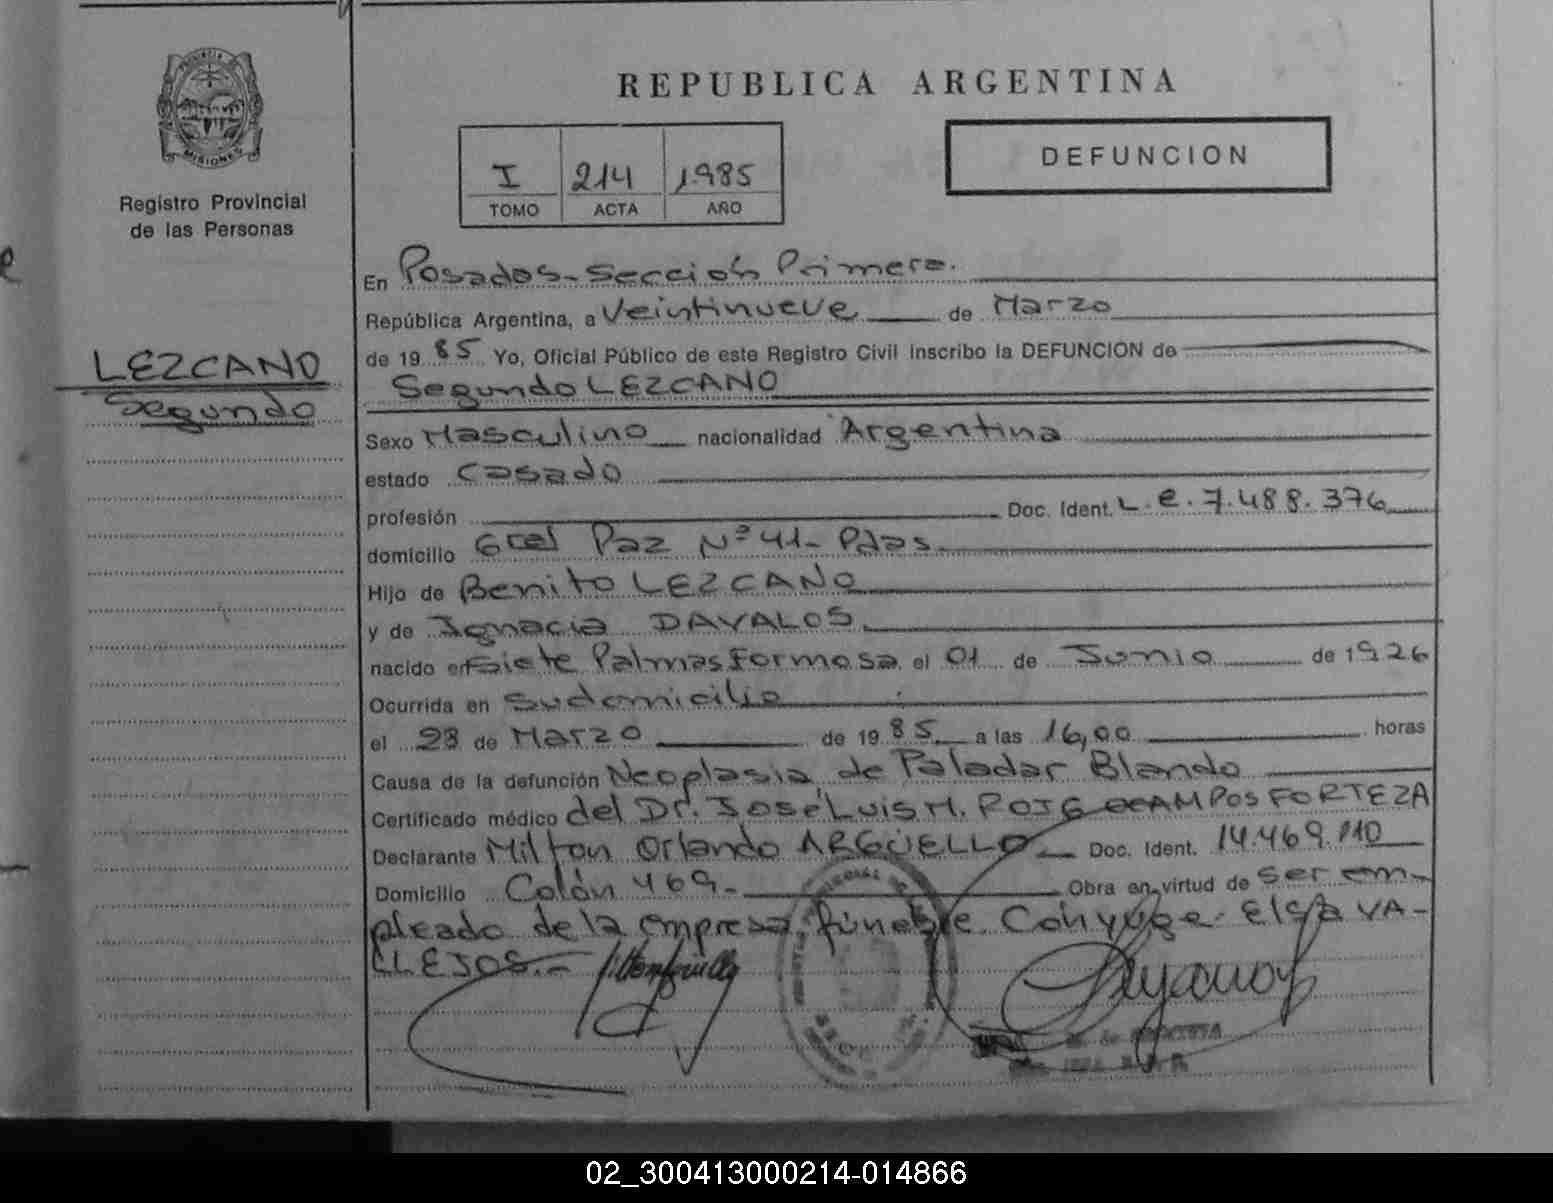 PROVINCIA DE
MISIONES
Registro Provincial
de las Personas
LEZCANO
Segundo
REPUBLICA ARGENTINA
I 214 1985
TOMO ACTA AÑO
DEFUNCION
En Posadas-Sección Primera.
República Argentina, a Veintinueve de Marzo
de 1985 Yo, Oficial Público de este Registro Civil inscribo la DEFUNCION de
Segundo LEZCANO
Sexo Masculino nacionalidad Argentina
estado Casado
profesión Doc. Ident. L.e.7.488.376
domicilio Gral Paz Nº 41- Pdas.
Hijo de Benito LEZCANO
y de Ignacia DAVALOS
nacido en Siete Palmas Formosa el 01 de Junio de 1926
Ocurrida en Su domicilio
el 28 de Marzo de 1985 a las 16,00 horas
Causa de la defunción Neoplasia de Paladar Blando
Certificado médico del Dr. José Luis M. ROIG OCAMPOS FORTEZA
Declarante Milton Orlando ARGÜELLO Doc. Ident. 14.469.110
Domicilio Colón 469.- Obra en virtud de ser em-
pleado de la empresa fúnebre. Cónyuge: Elsa VA-
LLEJOS.-
02_300413000214-014866